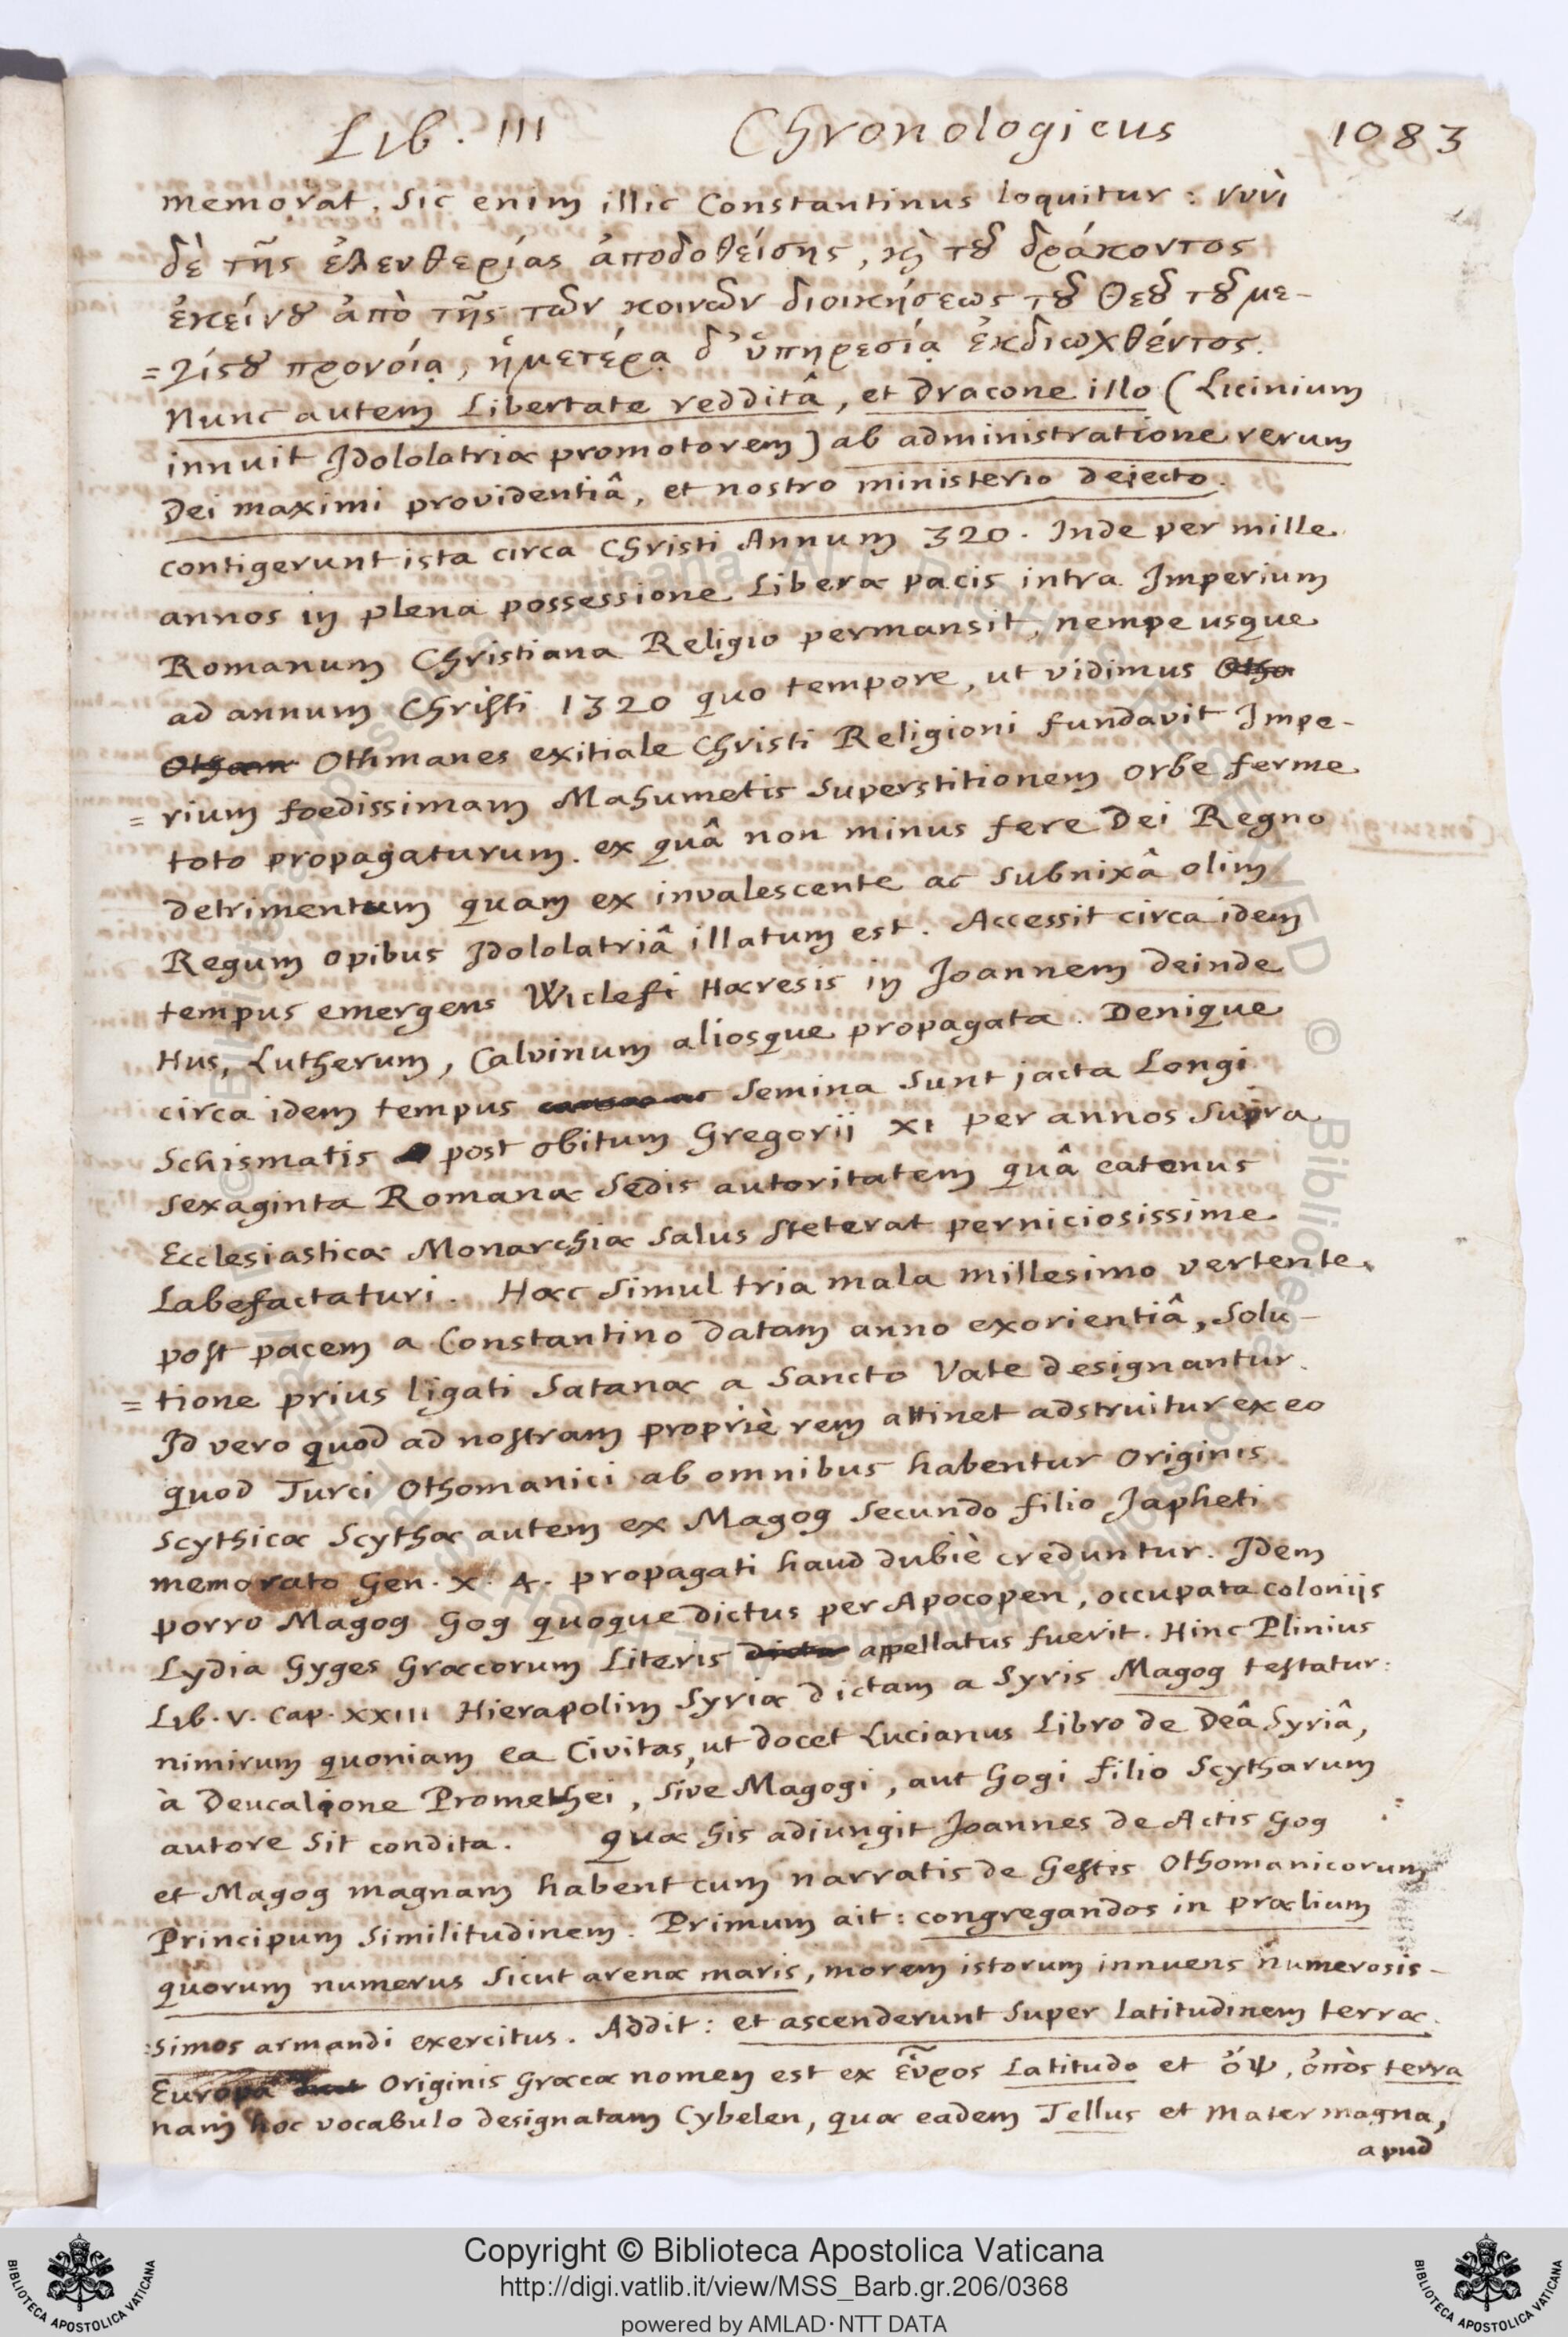 Lib. III Chronologicus 1083
memorat. Sic enim illic Constantinus loquitur: νυνὶ
δὲ τῆς ἐλευθερίας ἀποδοθείσης, ϗ̀ τȣ͂ δράκοντος
ἐκείνȣ ἀπὸ τῆς τῶν κοινῶν διοικήσεως τȣ͂ Θεȣ͂ τȣ͂ με-
=γίϛȣ προνοίᾳ, ἡμετέρᾳ δ' ὑπηρεσίᾳ ἐκδιωχθέντος.
Nunc autem Libertate redditâ, et Dracone illo (Licinium
innuit Idololatriæ promotorem) ab administratione rerum
Dei maximi providentiâ, et nostro ministerio dejecto.
contigerunt ista circa Christi Annum 320. Inde per mille
annos in plena possessione Liberæ pacis intra Imperium
Romanum Christiana Religio permansit, nempe usque
ad annum Christi 1320 quo tempore, ut vidimus Otho
Othom Othmanes exitiale Christi Religioni fundavit Impe-
=rium foedissimam Mahumetis Superstitionem orbe ferme
toto propagaturum. ex quâ non minus fere Dei Regno
detrimentum quam ex invalescente ac subnixâ olim
Regum opibus Idololatriâ illatum est. Accessit circa idem
tempus emergens Wiclefi Hæresis in Joannem deinde
Hus, Lutherum, Calvinum aliosque propagata. Denique
circa idem tempus Semina sunt jacta Longi
Schismatis post obitum Gregorij XI per annos supra
sexaginta Romanæ Sedis autoritatem quâ eatenus
Ecclesiasticæ Monarchiæ salus steterat perniciosissime
Labefactaturi. Hæc simul tria mala millesimo vertente
post pacem a Constantino datam anno exorientiâ, Solu-
=tione prius ligati Satanæ a Sancto Vate designantur.
Id vero quod ad nostram propriè rem attinet adstruitur ex eo
quod Turci Othomanici ab omnibus habentur originis
Scythicæ Scythæ autem ex Magog secundo filio Japheti
memorato Gen. X. 4. propagati haud dubiè creduntur. Idem
porro Magog Gog quoque dictus per Apocopen, occupata colonijs
Lydia Gyges Græcorum Literis dicta appellatus fuerit. Hinc Plinius
Lib. V. Cap. XXIII Hierapolim Syriæ dictam a Syris Magog testatur:
nimirum quoniam ea Civitas, ut docet Lucianus Libro de Deâ Syriâ,
à Deucalione Promethei, sive Magogi, aut Gogi filio Scytharum
autore sit condita. Quæ his adiungit Joannes de Actis Gog
et Magog magnam habent cum narratis de Gestis Othomanicorum
Principum Similitudinem. Primum ait: congregandos in prælium
quorum numerus sicut arena maris, morem istorum innuens numerosis-
:simos armandi exercitus. Addit: et ascenderunt super latitudinem terræ.
Europa Originis Græcæ nomen est ex εὖρος Latitudo et ὄψ, ὀπὸς terra
nam hoc vocabulo designatam Cybelen, quæ eadem Tellus et Mater magna,
apud
Copyright © Biblioteca Apostolica Vaticana
http://digi.vatlib.it/view/MSS_Barb.gr.206/0368
powered by AMLAD·NTT DATA
BIBLIOTECA APOSTOLICA VATICANA
BIBLIOTECA APOSTOLICA VATICANA